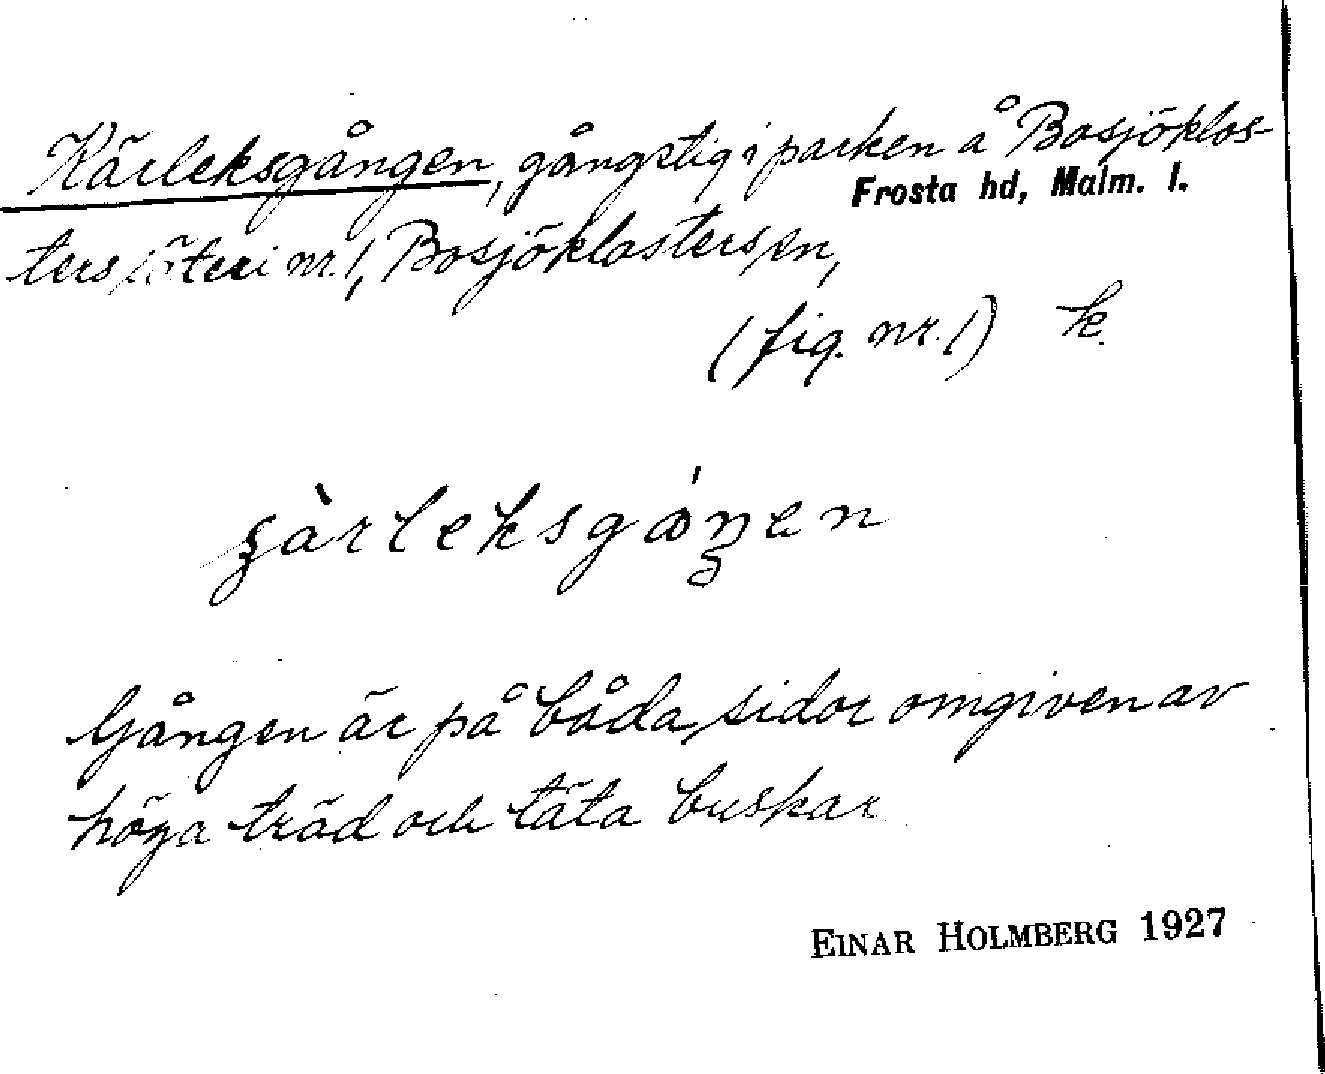 Kärleksgången, gångstig i parken å Bosjöklos-
Frosta hd, Malm. l.
ters säteri nr. 1, Bosjöklosters sn,
(fig. nr. 1) k.
gärleksgáŋen
Gången är på båda sidor omgiven av
höga träd och täta buskar
EINAR HOLMBERG 1927